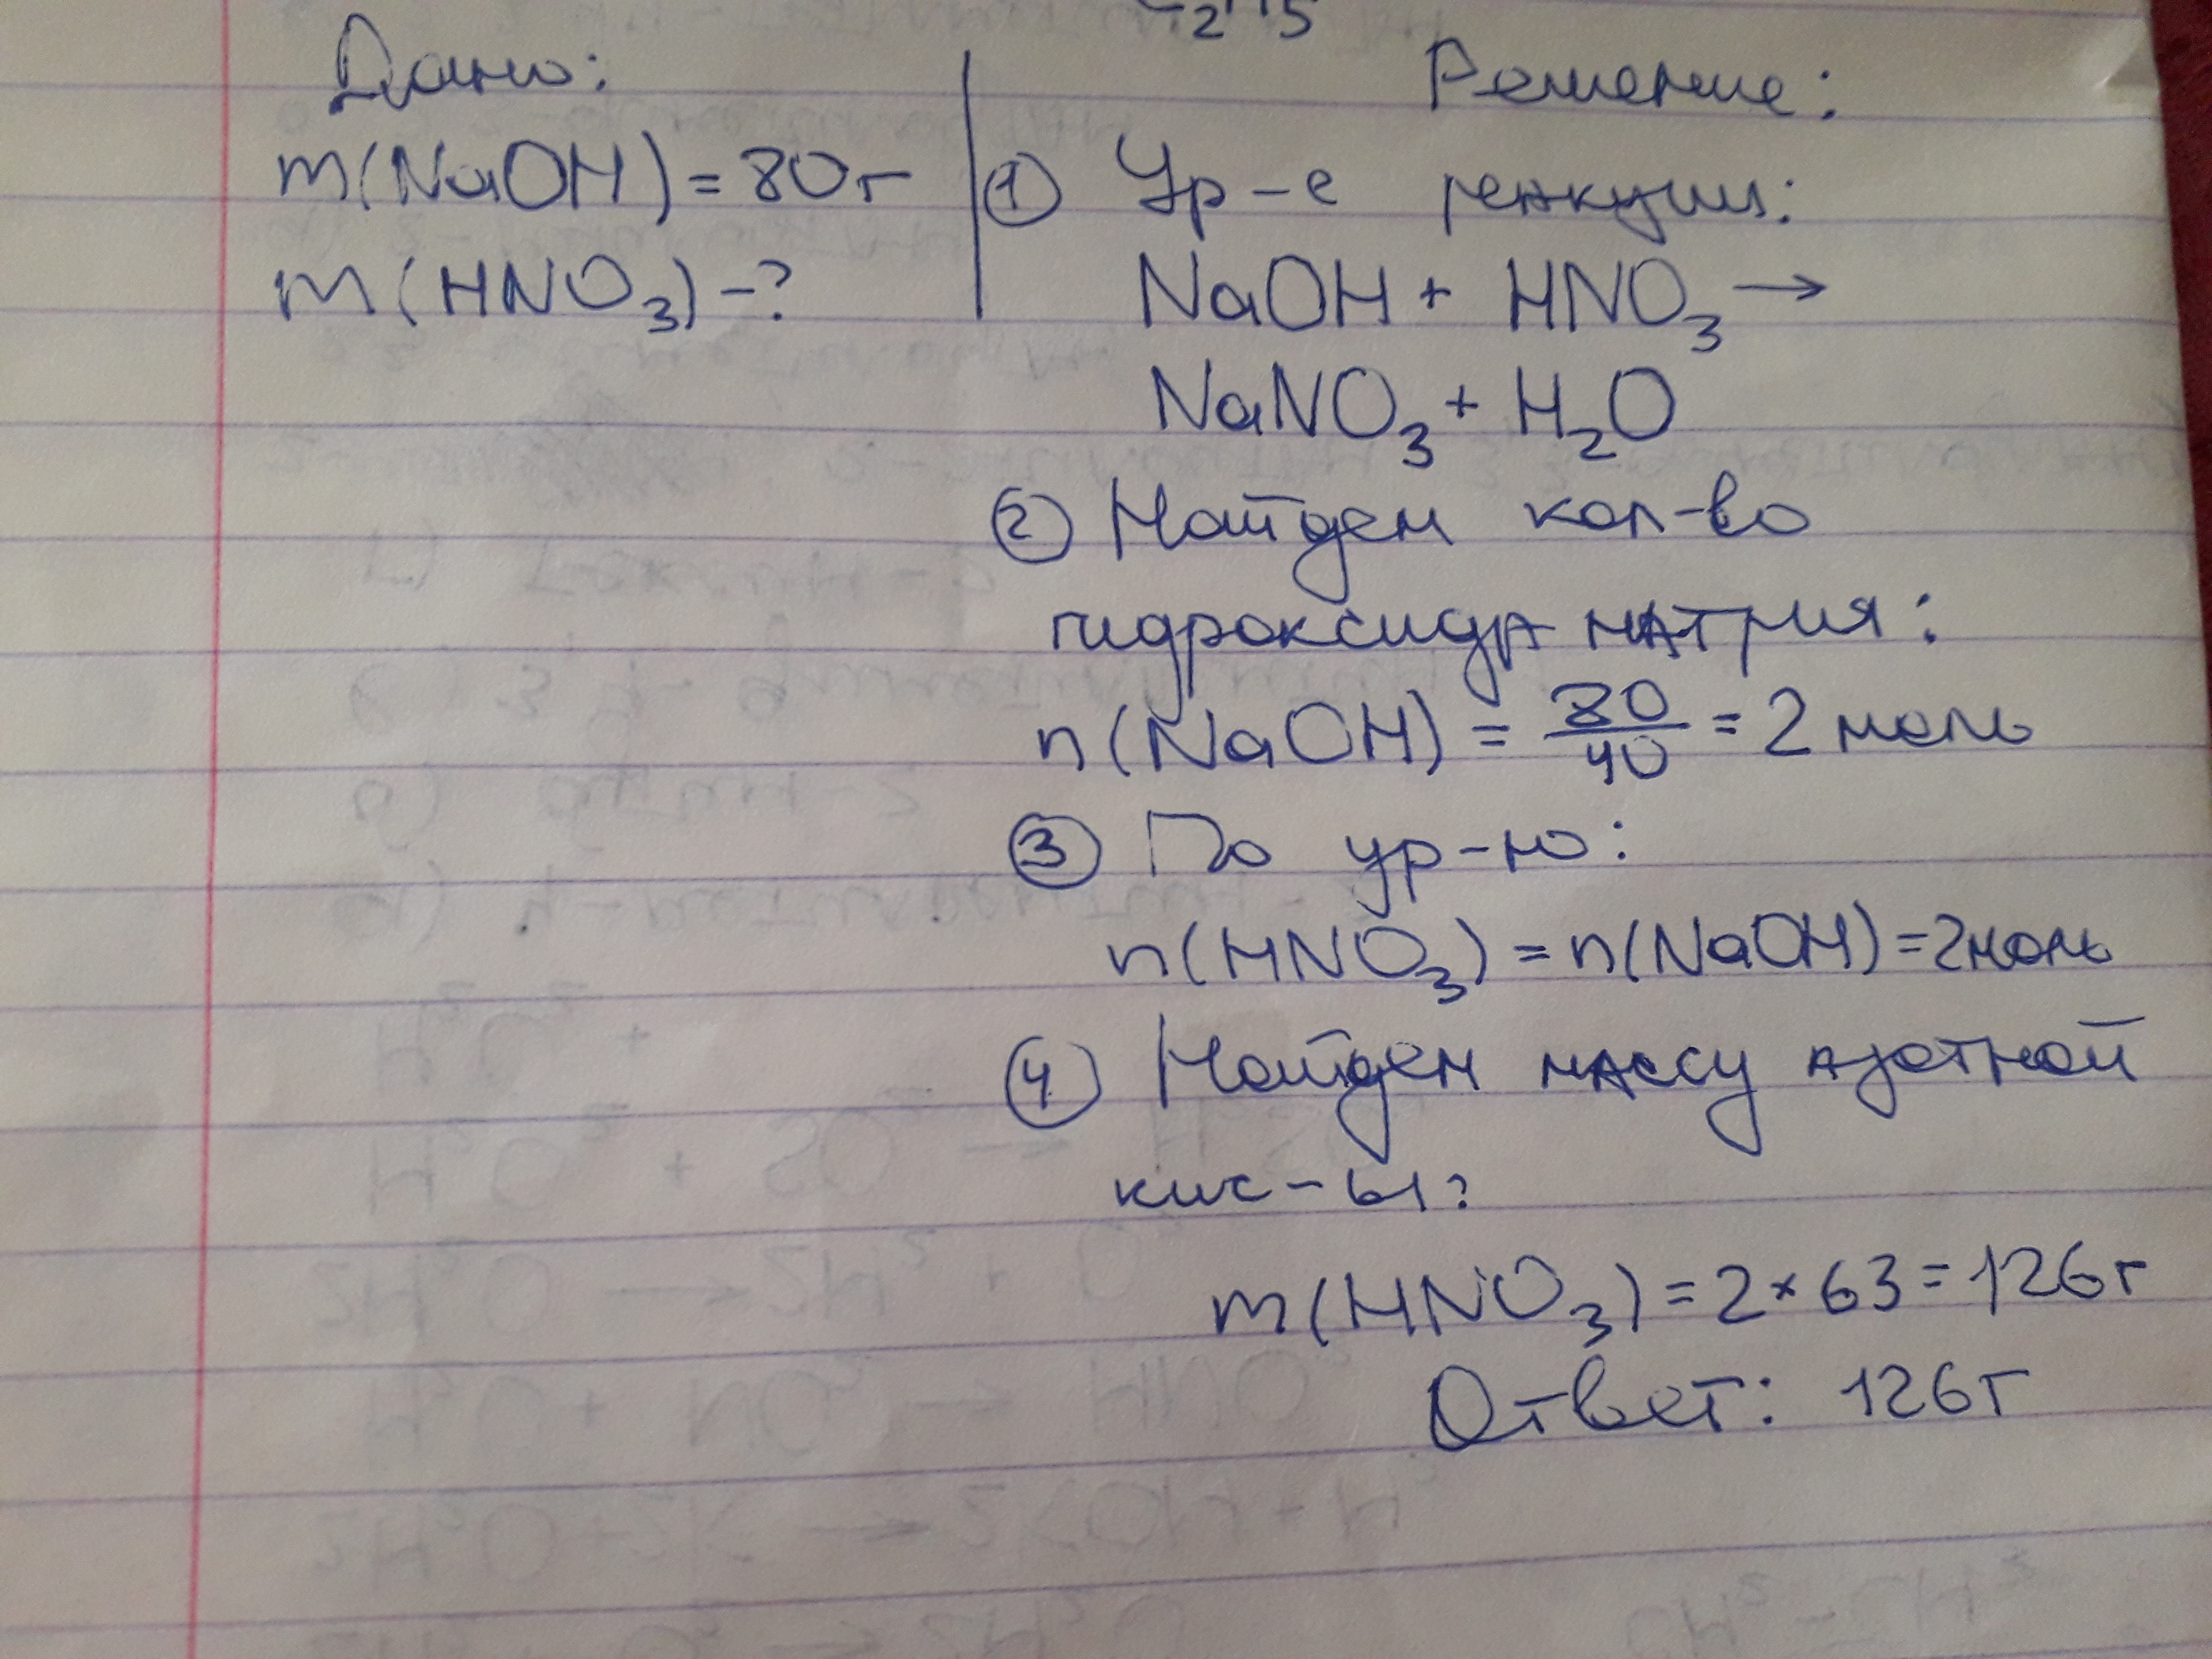 Дано:
m(NaOH) = 80 г
m(HNO₃) - ?
Решение:
① Ур-е реакции:
NaOH + HNO₃ →
NaNO₃ + H₂O
② Найдем кол-во
гидроксида натрия:
n(NaOH) = 80/40 = 2 моль
③ По ур-ю:
n(HNO₃) = n(NaOH) = 2 моль
④ Найдем массу азотной
кис-ы:
m(HNO₃) = 2 × 63 = 126 г
Ответ: 126 г